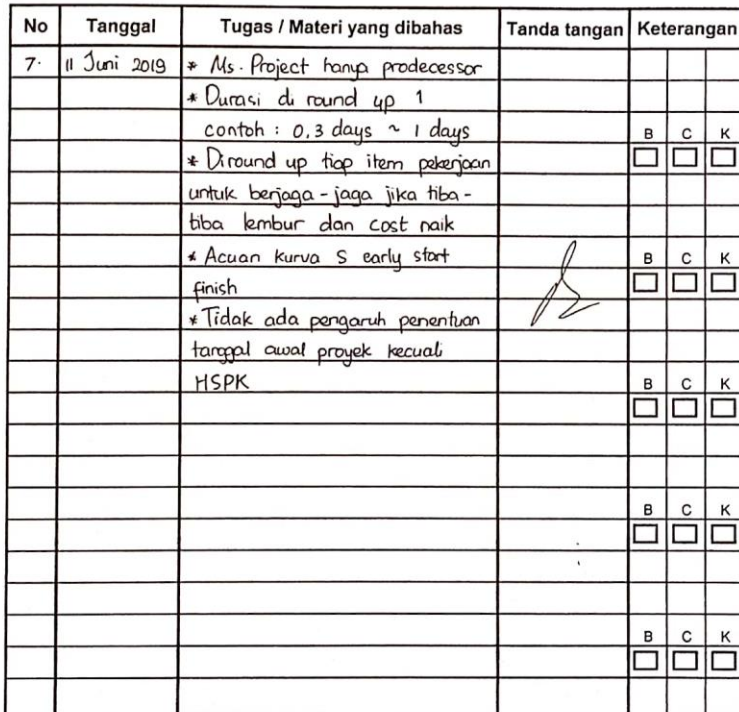 No Tanggal Tugas / Materi yang dibahas Tanda tangan Keterangan
7. 11 Juni 2019 * Ms. Project hanya prodecessor
* Durasi di round up 1
contoh : 0,3 days ~ 1 days B C K
* Diround up tiap item pekerjaan
untuk berjaga - jaga jika tiba -
tiba lembur dan cost naik
* Acuan kurva S early start B C K
finish
* Tidak ada pengaruh penentuan
tanggal awal proyek kecuali
HSPK B C K
B C K
B C K